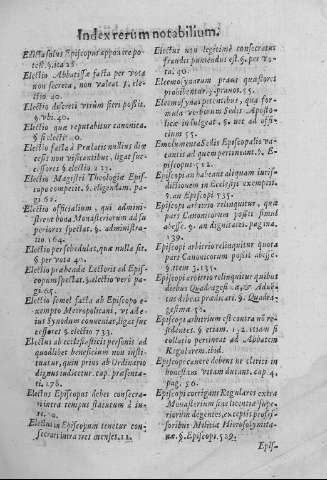 Index rerum notabilium.
Electus illius Episcopus approvere po-
test. §. ita 28.
Electio Abbatissæ facta per vota
non secreta, non valeat §. ele-
ctio. 40.
Electio discreti utrùm fieri possit,
§. ubi. 40.
Electio quæ reputabitur canonica,
§. si electio
Electio facta à Prælatis nullius diœ
cesis non visitantibus, ligat suc-
cessores §. electio
Electio Magistri Theologiæ Epis-
copo competit. §. eligendam. pa-
gi
Electio officialium, qui admini-
strent bona Monasteriorum ad su
periores spectat. §. administra-
tio. 164.
Electio per schedulas, quæ nulla sit.
§. per vota 40.
Electio præbendæ Lectoris ad Epis-
copum spectat. §. electio verò pa-
gi. 65.
Electio semel facta ab Episcopo e-
xempto Metropolitani, ut ad e-
ius Synodum conventas, ligat suc
cessores §. electio. 733.
Electus ab ecclesiasticis personis ad
quodlibet beneficium non insti-
tuatur, quin prius ab Ordinario
dignus iudicetur. cap. præsenta-
ti, 176.
Electus Episcopus debet consecra-
ri intra tempus statutum à iu-
re.
Electus in Episcopum tenetur con-
secrari intra tres menses.
Electus non legitimè consecratus
fraudes puniendus est. §. per vo-
ta. 40.
Eleemosynarum pravi quæstores
prohibentur. §. pravos. 55.
Eleemosynas petentibus, qua for-
mula verborum Sedis Aposto-
licæ indulgeat, §. ut ad offi-
cium 55.
Emolumenta Sedis Episcopalis va-
cantis ad quem pertineant. §. E-
piscopus. 502.
Episcopi an habeant aliquam iuris-
dictionem in Ecclesiis exempti.
§. an Episcopi 535.
Episcopi arbitrio relinquitur, quæ
pars Canonicorum possit simul
abesse. §. an dignitatis. pagina,
139.
Episcopi arbitrio relinquitur quota
pars Canonicorum possit abesse.
§. item 3. 135.
Episcopi arbitrio relinquitur quibus
diebus Quadragesimæ, & Adven-
tus debeat prædicari. §. Quadra-
gesima 52.
Episcopi arbitrium est contra nō re-
sidentes. §. etiam. 152. etiam si
collatio pertineat ad Abbatem
Regularem. ibid.
Episcopi cavere debent ne clerici in
honestam vitam ducant. cap. 4.
pag. 56.
Episcopi corrigant Regulares extra
Monasterium sine licentia Supe-
riorum degentes, exceptis profes-
soribus Militiæ Hierosolymita-
næ. §. Episcopi. 529.
Epis-